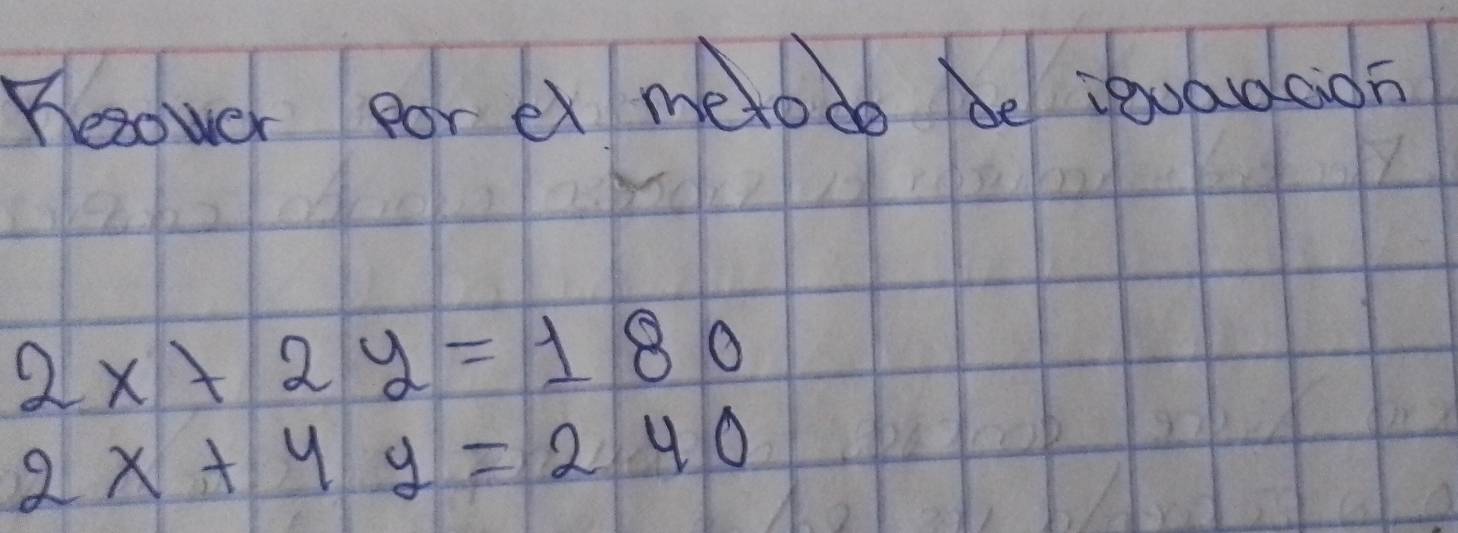 Resolver por el metodo de igualación
2x + 2y = 180
2x + 4y = 240